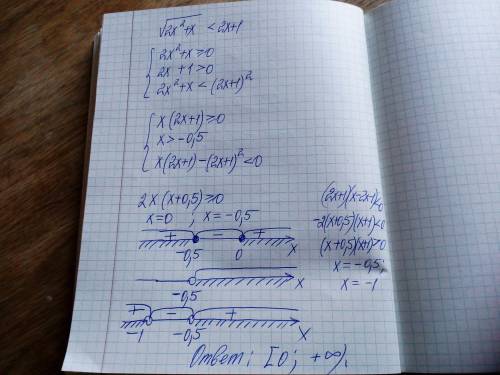 √2x²+x < 2x+1
{ 2x²+x ≥ 0
2x+1 > 0
2x²+x < (2x+1)²
{ x(2x+1) ≥ 0
x > -0,5
x(2x+1)-(2x+1)² < 0
2x(x+0,5) ≥ 0
x=0 ; x=-0,5
+ - +
-0,5 0 x
-0,5 x
+ - +
-1 -0,5 x
(2x+1)(x-2x-1)<0
-2(x+0,5)(x+1)<0
(x+0,5)(x+1)>0
x=-0,5;
x=-1
Ответ: [0; +∞).